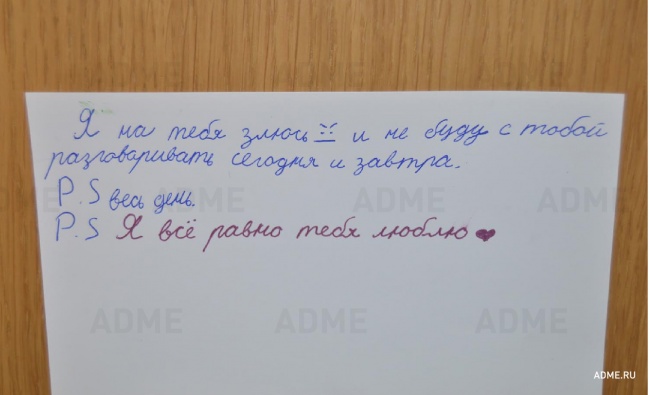 Я на тебя злюсь и не буду с тобой
разговаривать сегодня и завтра.
P.S весь день.
P.S Я всё равно тебя люблю ❤
ADME
ADME
ADME
ADME
ADME
ADME
ADME.RU